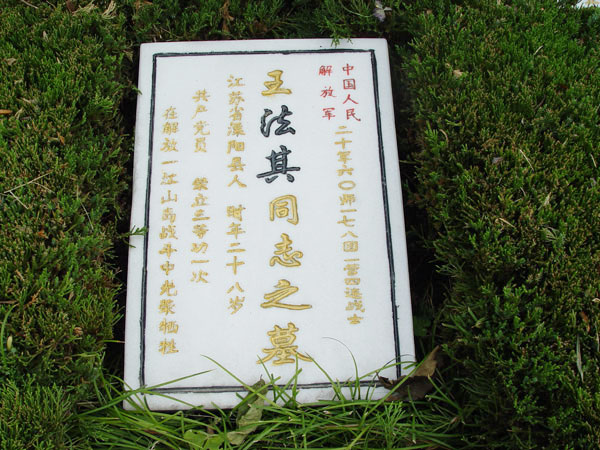 中国人民
解放军
二十军六〇师一七八团一营四连战士
王法其同志之墓
江苏省溧阳县人 时年二十八岁
共产党员 荣立三等功一次
在解放一江山岛战斗中光荣牺牲